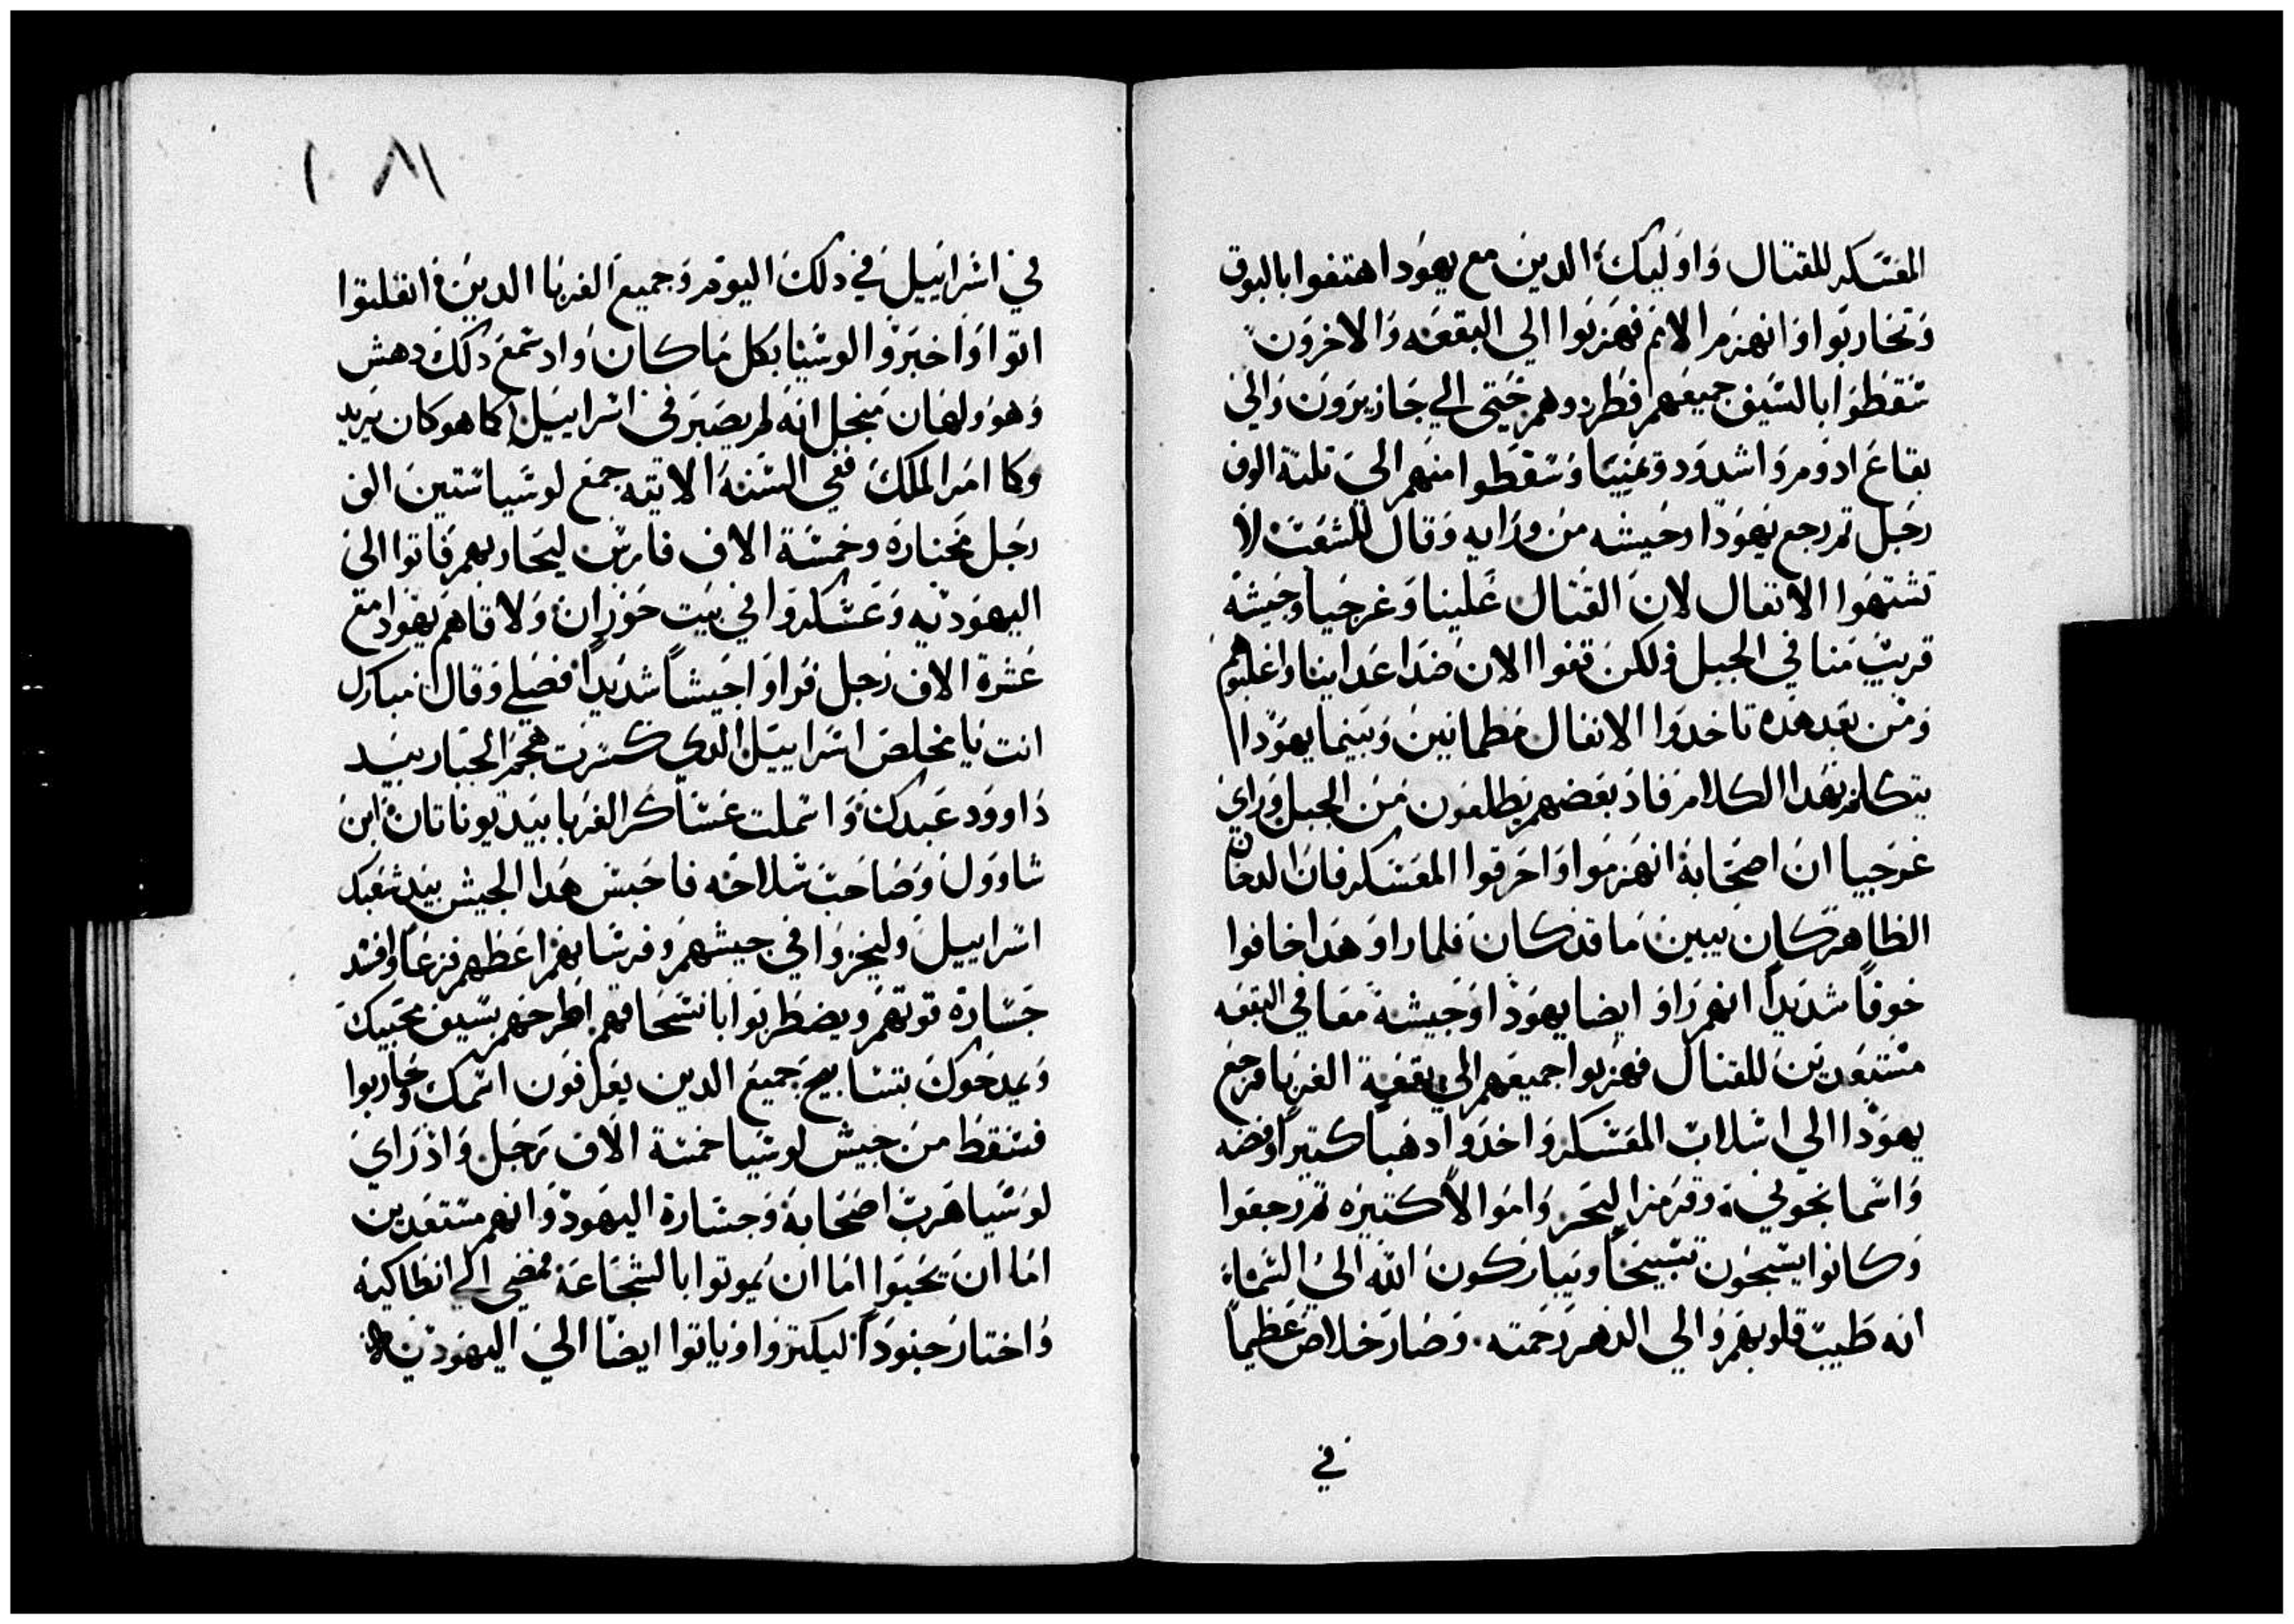 المعسكر للقتال واوليك الدين مع يهودا هتفوا بالبوق
وتحاربوا وانهزم الامم فهربوا الي البقعه والاخرون
سقطوا بالسيف جميعهم فطردوهم حتي الي جازيرون والي
بقاع ادوم واشدود ويمنيا وسقطوا منهم الي تلتة الوف
رجل تم رجع يهودا وجيشه من ورايه وقال للشعب لا
تشتهوا الانفال لان القتال علينا وغرجيا وجيشه
قريب منا في الجبل ولكن قفوا الان ضد اعداينا واغلبوهم
ومن بعد هده تاخدوا الانفال مطمانين وبينما يهودا
يتكلم بهدا الكلام فاد بعضهم يطلعون من الجبل وراي
غرجيا ان اصحابه انهزموا واحرقوا المعسكر فان الدخان
الظاهر كان يبين ما قد كان فلما راو هدا خافوا
خوفاً شديداً انهم راو ايضا يهودا وجيشه معا في البقعه
مستعدين للقتال فهربوا جميعهم الي بقعة الغربا فرجع
يهودا الي اسلاب المعسكر واخدوا دهبا كتيرا وفضه
واسمانجوني وقرمز البحر واموالاً كتيره تم رجعوا
وكانوا يسبحون تسبيحاً ويباركون الله الي السماء
انه طيب قلوبهم والي الدهر رحمته وصار خلاص عظيماً
في
١٠٨١
في اسراييل في دلك اليوم وجميع الغربا الدين انفلتوا
اتوا واخبروا لوسيا بكل ما كان واد سمع دلك دهش
وهو ولهان من اجل انه لم يصير في اسراييل كما هو كان يريد
وكما امر الملك ففي السنه الاتيه جمع لوسيا ستين الف
رجل مختاره وخمسة الاف فارس ليحاربهم فاتوا الي
اليهوديه وعسكروا في بيت حوران ولاقاهم يهودا مع
عشرة الاف رجل فراوا جيشاً شديداً فصلي وقال مبارك
انت يا مخلص اسراييل الدي كسرت هجم الجبار بيد
داوود عبدك واسملت عساكر الغربا بيد يوناتان ابن
شاوول وصاحب سلاحه فاحبس هدا الجيش بيد شعبك
اسراييل وليخزوا في جيشهم وفرسانهم اعطهم فزعاً وافسد
جسارة قوتهم ويضطربوا بانسحاقهم اطرحهم بسيف محبيك
ويمدحوك بتسابيح جميع الدين يعرفون اسمك وحاربوا
فسقط من جيش لوسيا خمسة الاف رجل واد راي
لوسيا هرب اصحابه وجسارة اليهود وانهم مستعدين
اما ان يحيوا اما ان يموتوا بالشجاعة مضي الي انطاكيه
واختار جنوداً ليكتروا وياتوا ايضا الي اليهوديه